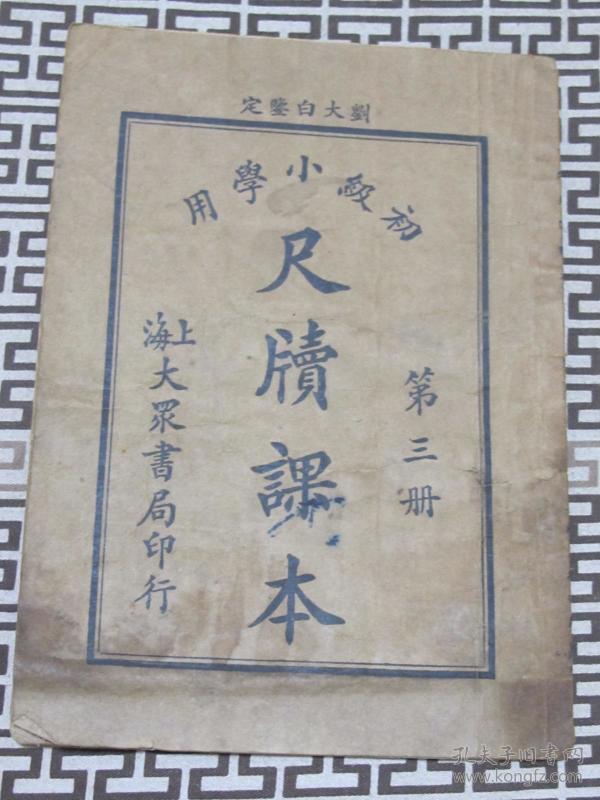 劉大白鑒定
初級小學用
第三册
尺牘課本
上海大眾書局印行
孔夫子旧书网
www.kongfz.com